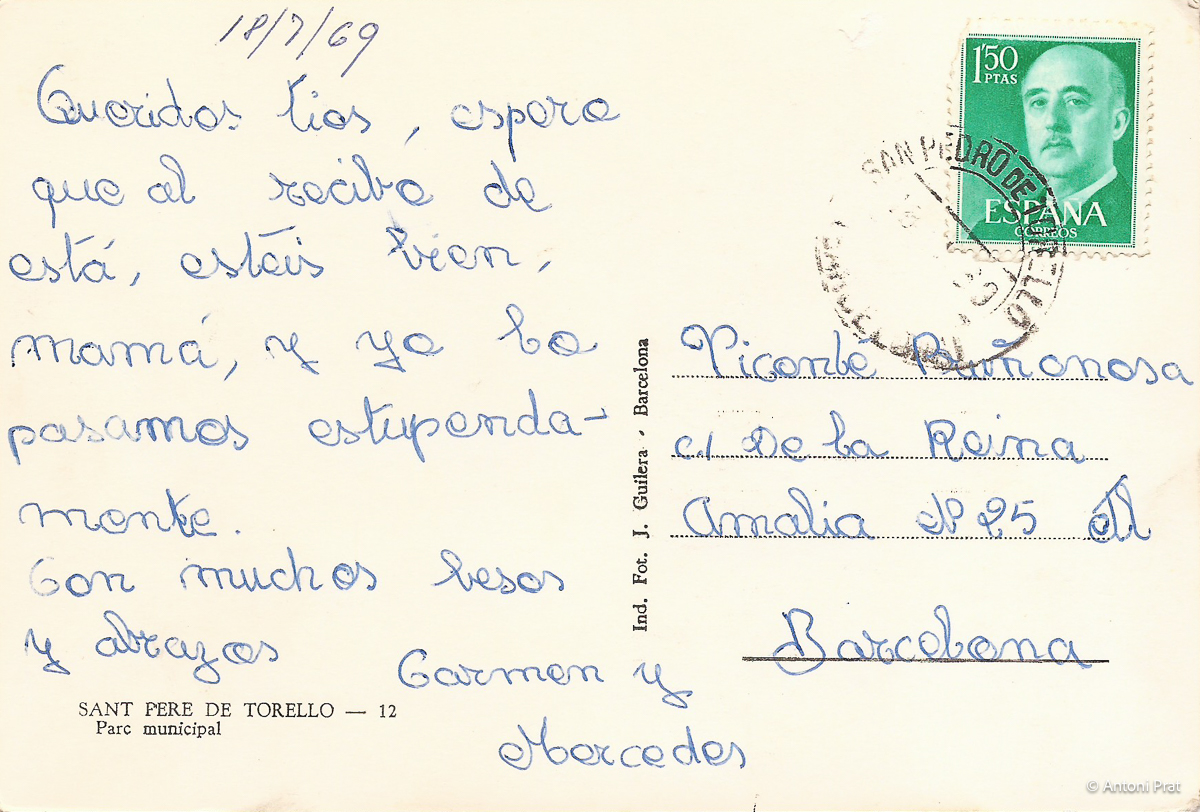 18/7/69
Queridos tios, espero
que al recibo de
está, estéis bien,
mamá, y yo lo
pasamos estupenda-
mente.
Con muchos besos
y abrazos
Carmen y
Mercedes
SANT PERE DE TORELLO — 12
Parc municipal
Ind. Fot. J. Guilera - Barcelona
1'50
PTAS
ESPAÑA
CORREOS
SAN PEDRO DE TORELLO
Vicenté
c/ De la Reina
Amalia Nº 25
Barcelona
© Antoni Prat